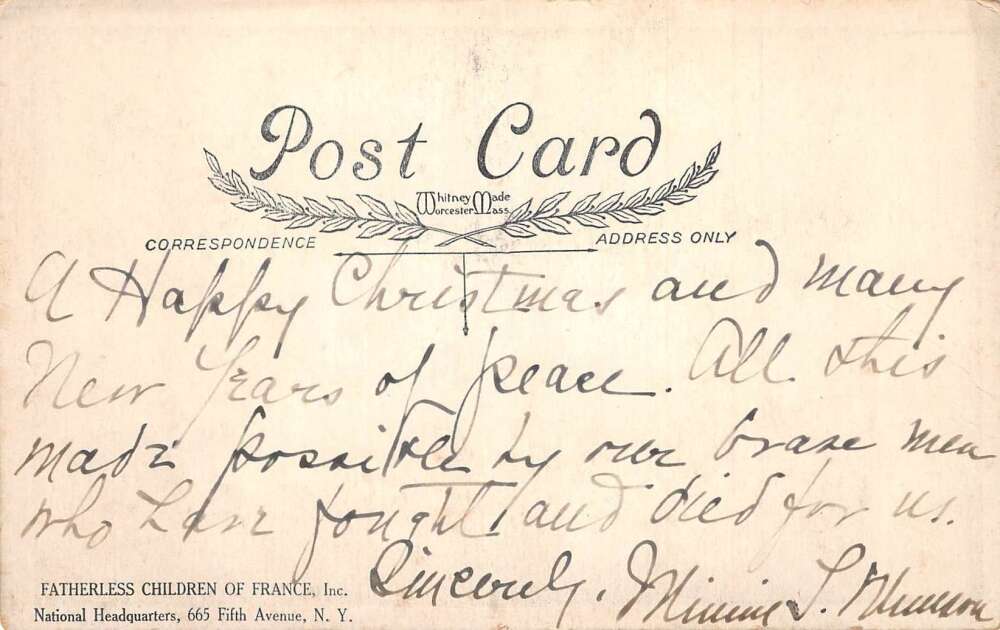 Post Card
Whitney Made
Worcester Mass
CORRESPONDENCE
ADDRESS ONLY
A Happy Christmas and many
New Years of peace. All this
made possible by our brave men
who have fought and died for us.
Sincerely, Minnie S.
FATHERLESS CHILDREN OF FRANCE, Inc.
National Headquarters, 665 Fifth Avenue, N. Y.